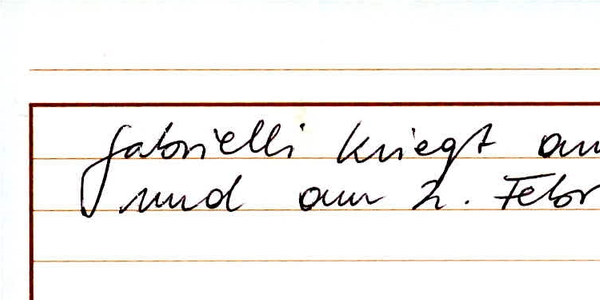 Gabrielli kriegt am
und am 2. Febr